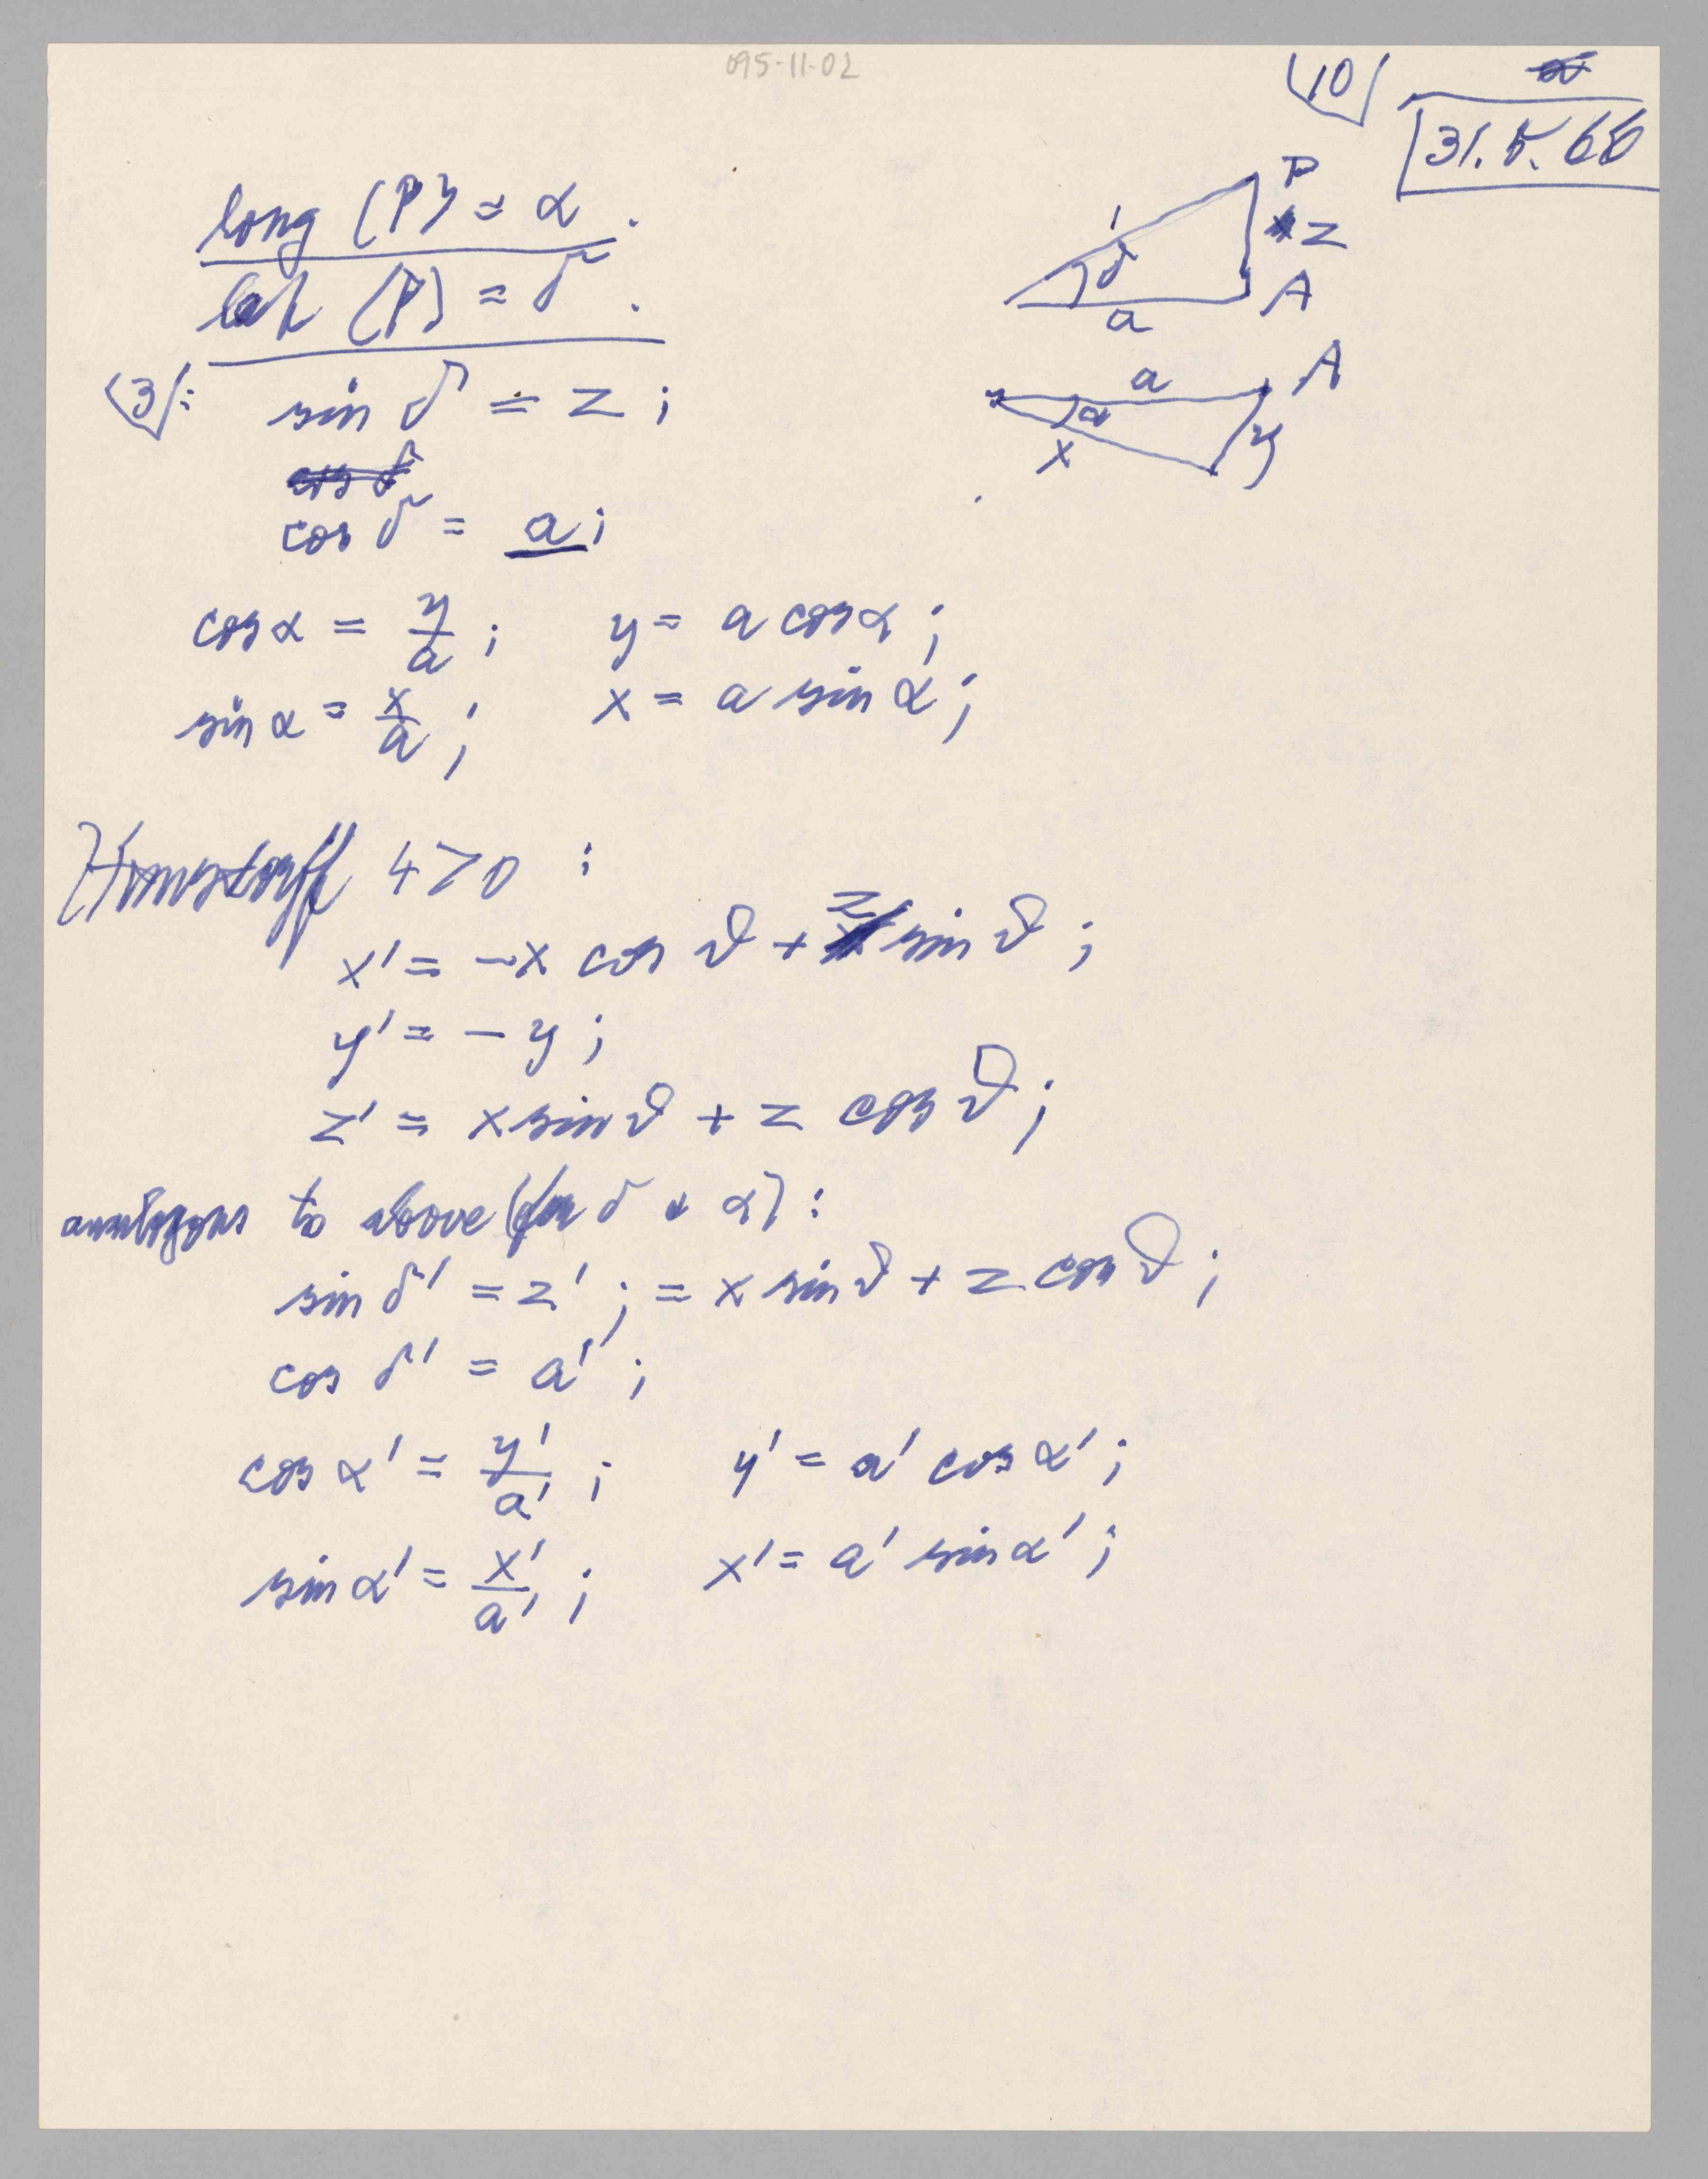 095-11-02
10
31.5.66
long (P) = α .
lat (P) = δ .
P
1
z
δ
A
a
3: sin δ = z ;
a
A
α
x
y
cos δ
cos δ = a ;
cos α = y/a ; y = a cos α ;
sin α = x/a ; x = a sin α ;
Hausdorff 4>0 :
x' = -x cos ϑ + z sin ϑ ;
y' = - y ;
z' = x sin ϑ + z cos ϑ ;
analogous to above (for δ & α) :
sin δ' = z' ; = x sin ϑ + z cos ϑ ;
cos δ' = a' ;
cos α' = y'/a' ; y' = a' cos α' ;
sin α' = x'/a' ; x' = a' sin α' ;